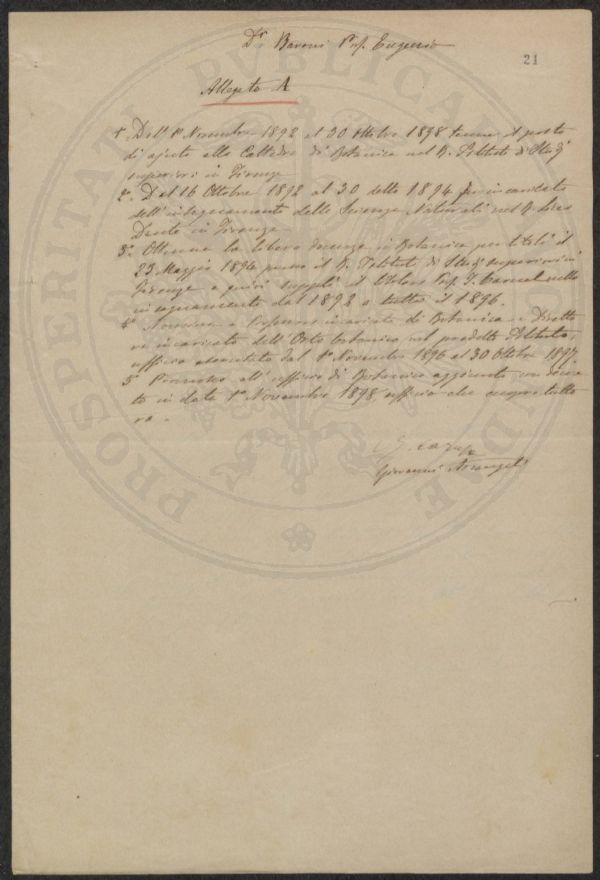 Dr Baroni Prof. Eugenio
21
Allegato A
1° Dall' 1° Novembre 1892 al 30 Ottobre 1898 tenne il posto
di ajuto alla Cattedra di Botanica nel R. Istituto di Studi
superiori in Firenze
2° Dal 16 Ottobre 1892 al 30 detto 1894 fu incaricato
dell'insegnamento delle Scienze Naturali nel R. Liceo
Dante in Firenze
3° Ottenne la libera docenza in Botanica per titoli il
23 Maggio 1894 presso il R. Istituto di Studi superiori in
Firenze e quivi supplì il titolare Prof. T. Caruel nello
insegnamento dal 1893 a tutto il 1896.
4° Nomina a Professore incaricato di Botanica e Diretto
re incaricato dell'Orto botanico nel predetto Istituto,
ufficio esercitato dal 1° Novembre 1896 al 30 Ottobre 1897.
5° Promosso all'ufficio di Botanico aggiunto con
to in data 1° Novembre 1898, ufficio che occupa tutto
ra.
Giovanni Arcangeli
PROSPERITATI PUBLICAE